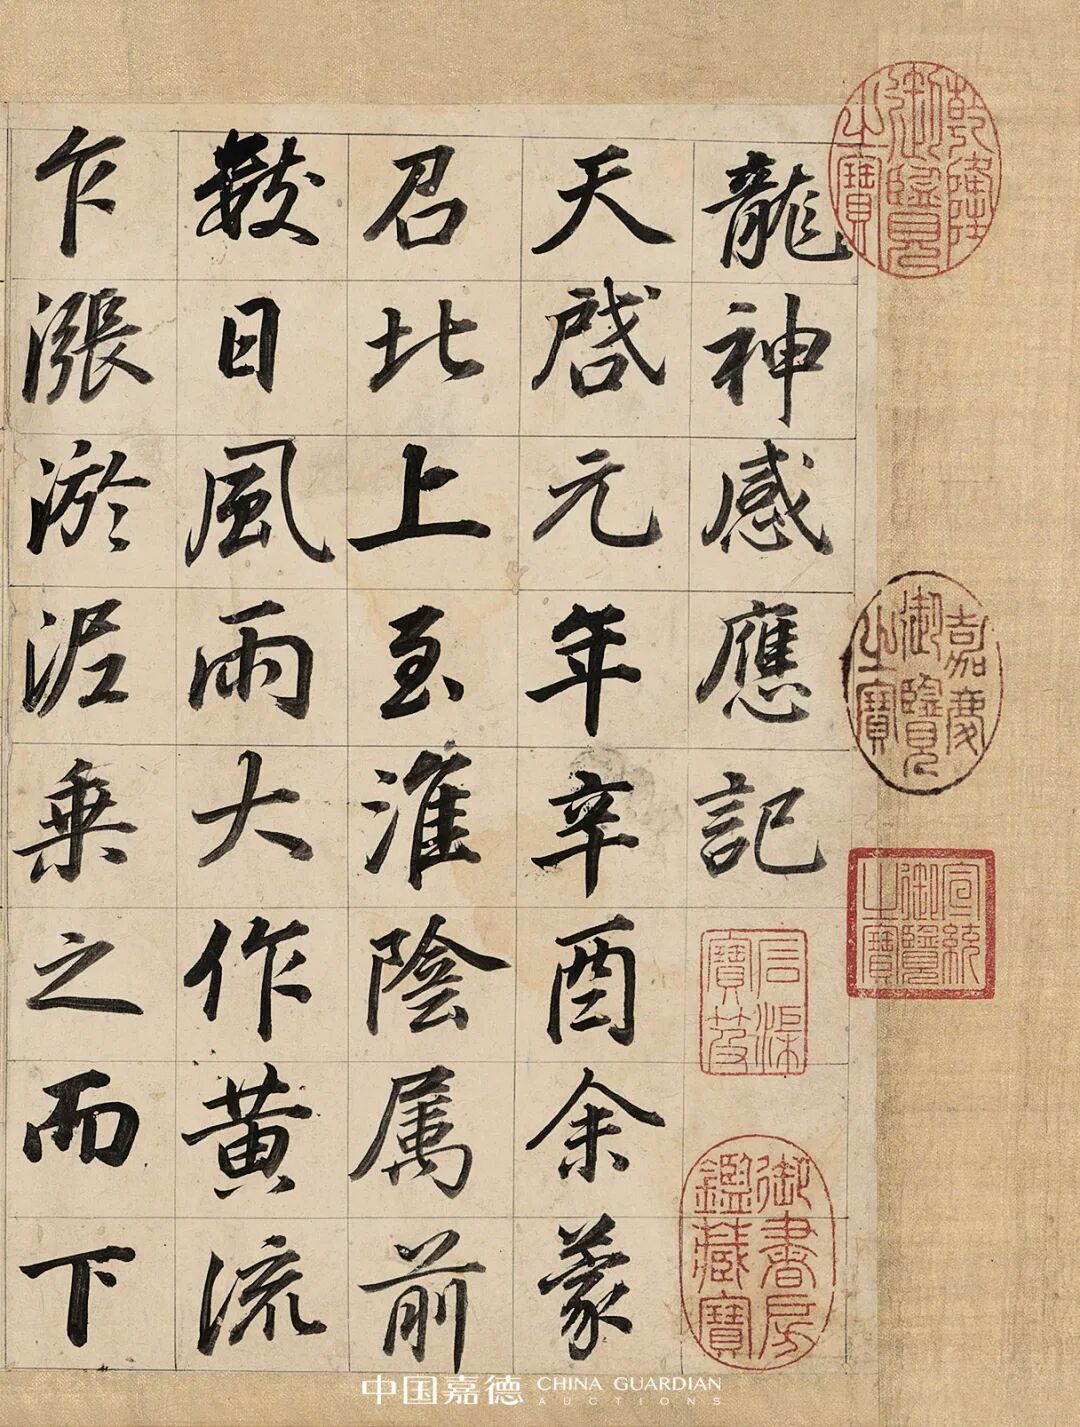 龍神感應記
天啓元年辛酉余蒙
召北上至淮陰属前
數日風雨大作黃流
乍漲淤泥乗之而下
乾隆御覽之寶
嘉慶御覽之寶
宣統御覽之寶
石渠寶笈
御書房鑑藏寶
中国嘉德 CHINA GUARDIAN AUCTIONS